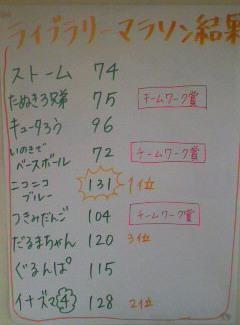 ライブラリーマラソン結果
ストーム 74
たぬき3兄弟 75 チームワーク賞
キュータろう 96
いのきで
ベースボール 72 チームワーク賞
ニコニコ
ブルー 131 1位
つきみだんご 104 チームワーク賞
だるまちゃん 120 3位
ぐるんぱ 115
イナズマ4 128 2位